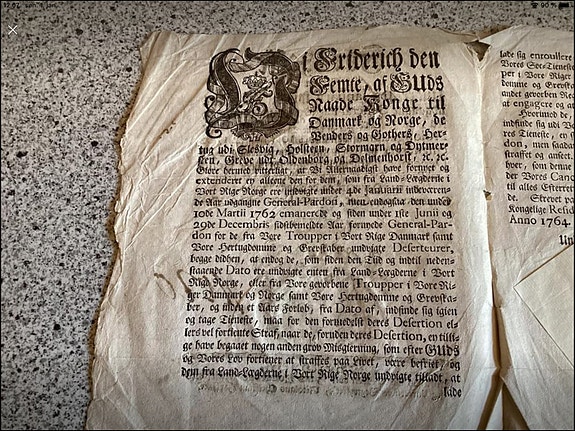 Wi Friderich den
Femte, af GUDs
Naade Konge til
Danmark og Norge, de
Venders og Gothers, Her-
tug udi Slesvig, Holsteen, Stormarn og Dytmer-
sken, Greve udi Oldenborg og Delmenhorst, ꝛc. ꝛc.
Giøre hermed vitterligt, at Vi Allernaadigst have fornyet og
extenderet en alleene den for dem, som fra Land-Lægderne i
Vort Rige Norge ere undvigte under 4de Januarii indeværen-
de Aar udgangne General-Pardon, men endogsaa den under
10de Martii 1762 emanerede og siden under 1ste Junii og
29de Decembris sidstbemeldte Aar fornyede General-Par-
don for de fra Vore Troupper i Vort Rige Danmark samt
Vore Hertugdomme og Grevskaber undvigte Deserteurer,
begge didhen, at endog de, som siden den Tiid og indtil neden-
staaende Dato ere undvigte enten fra Land-Lægderne i Vort
Rige Norge, eller fra Vore gevorbene Troupper i Vore Ri-
ger Danmark og Norge samt Vore Hertugdomme og Grevska-
ber, og inden et Aars Forløb, fra Dato af, indfinde sig igien
og tage Tieneste, maa for den formedelst deres Desertion el-
lers vel fortiente Straf, naar de, foruden deres Desertion, en tilli-
ge have begaaet nogen anden grov Misgierning, som efter GUDs
og Vores Lov fortiener at straffes paa Livet, være befriet, og
dem fra Land-Lægderne i Vort Rige Norge undvigte tilladt, at
lade
lade sig enroullere
Vores Søe-Tieneste
per i Vore Riger
domme og Grevska
andet gevorben Re
at engagere og at
Hvorimod de,
indfinde sig udi V
res Tieneste, en
don, men saadan
straffet og anseet.
ver, som denne
der Vores Canc
til alles Efterret
de. Skrevet pa
Kongelige Resid
Anno 1764.
Un